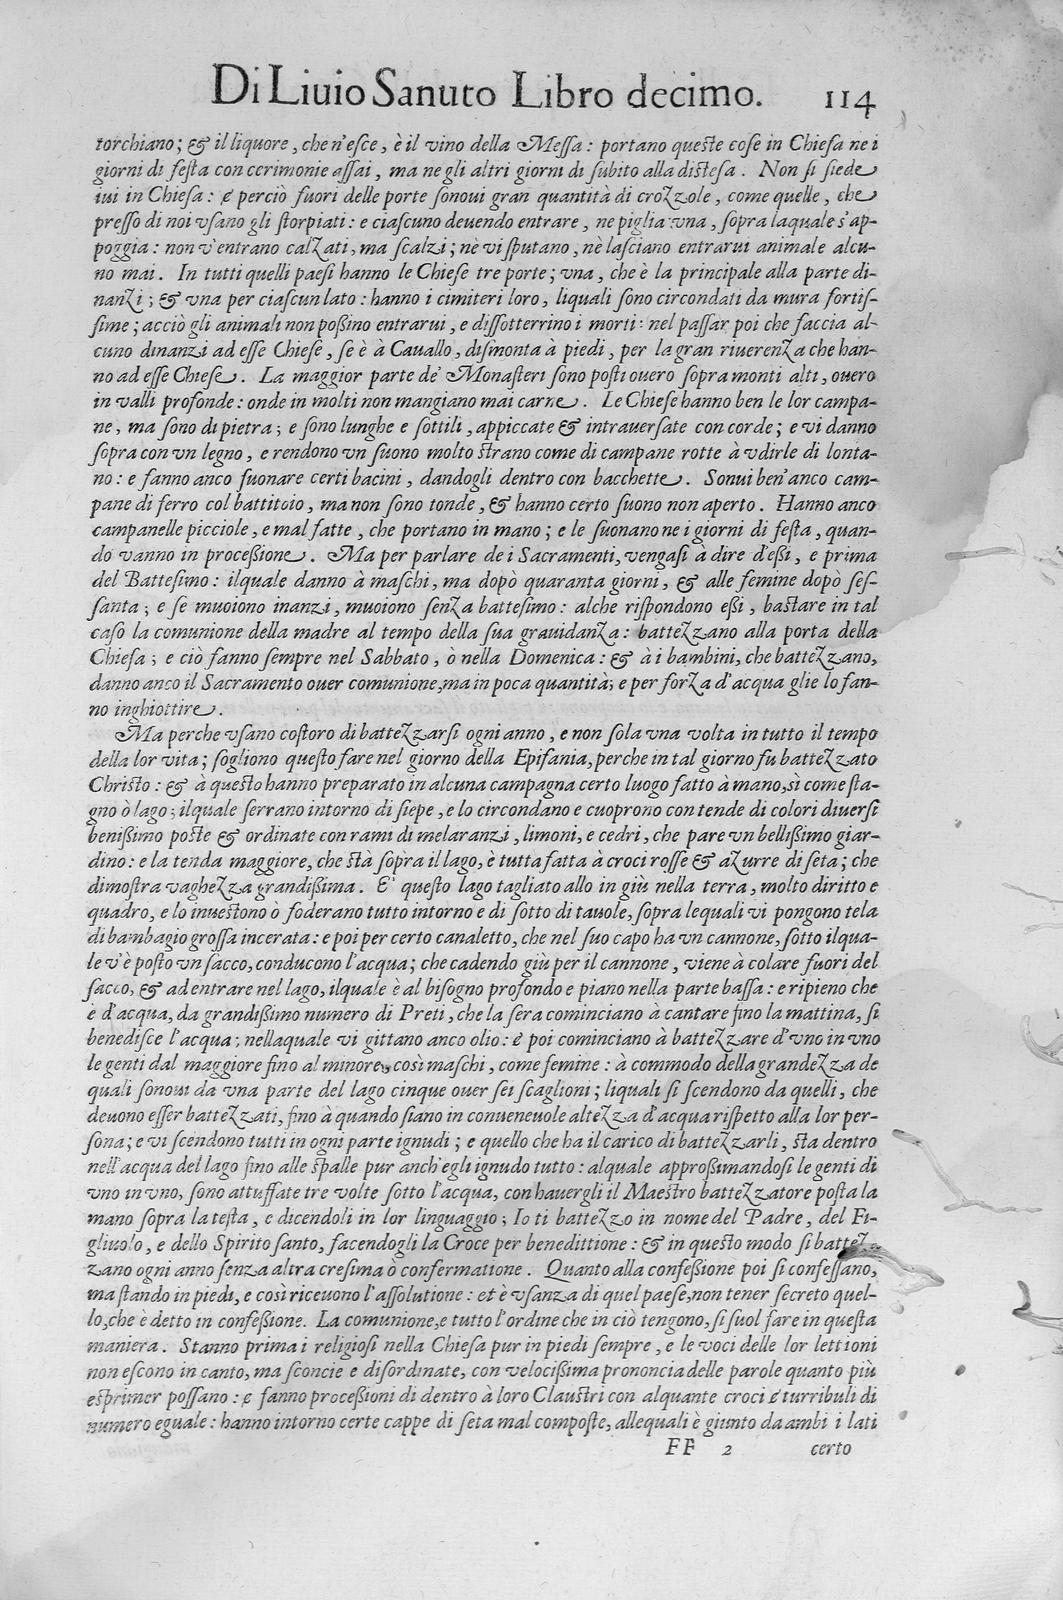 Di Liuio Sanuto Libro decimo. 114
torchiano; & il liquore, che n'esce, è il vino della Messa: portano queste cose in Chiesa ne i
giorni di festa con cerimonie assai, ma ne gli altri giorni di subito alla distesa. Non si siede
iui in Chiesa: e perciò fuori delle porte sonoui gran quantità di crozzole, come quelle, che
presso di noi vsano gli storpiati: e ciascuno deuendo entrare, ne piglia vna, sopra laquale s'ap-
poggia: non v'entrano calzati, ma scalzi; nè vi sputano, nè lasciano entrarui animale alcu-
no mai. In tutti quelli paesi hanno le Chiese tre porte; vna, che è la principale alla parte di-
nanzi; & vna per ciascun lato: hanno i cimiteri loro, liquali sono circondati da mura fortis-
sime; acciò gli animali non possino entrarui, e dissotterrino i morti: nel passar poi che faccia al-
cuno dinanzi ad esse Chiese, se è à Cauallo, dismonta à piedi, per la gran riuerenza che han-
no ad esse Chiese. La maggior parte de' Monasteri sono posti ouero sopra monti alti, ouero
in valli profonde: onde in molti non mangiano mai carne. Le Chiese hanno ben le lor campa-
ne, ma sono di pietra; e sono lunghe e sottili, appiccate & intrauersate con corde; e vi danno
sopra con vn legno, e rendono vn suono molto strano come di campane rotte à vdirle di lonta-
no: e fanno anco suonare certi bacini, dandogli dentro con bacchette. Sonui ben'anco cam-
pane di ferro col battitoio, ma non sono tonde, & hanno certo suono non aperto. Hanno anco
campanelle picciole, e mal fatte, che portano in mano; e le suonano ne i giorni di festa, quan-
do vanno in processione. Ma per parlare de i Sacramenti, vengasi à dire d'essi, e prima
del Battesimo: ilquale danno à maschi, ma dopò quaranta giorni, & alle femine dopò ses-
santa; e se muoiono inanzi, muoiono senza battesimo: alche rispondono essi, bastare in tal
caso la comunione della madre al tempo della sua grauidanza: battezzano alla porta della
Chiesa; e ciò fanno sempre nel Sabbato, ò nella Domenica: & à i bambini, che battezzano,
danno anco il Sacramento ouer comunione, ma in poca quantità; e per forza d'acqua glie lo fan-
no inghiottire.
Ma perche vsano costoro di battezzarsi ogni anno, e non sola vna volta in tutto il tempo
della lor vita; sogliono questo fare nel giorno della Epifania, perche in tal giorno fu battezzato
Christo: & à questo hanno preparato in alcuna campagna certo luogo fatto à mano, sì come sta-
gno ò lago; ilquale serrano intorno di siepe, e lo circondano e cuoprono con tende di colori diuersi
benissimo poste & ordinate con rami di melaranzi, limoni, e cedri, che pare vn bellissimo giar-
dino: e la tenda maggiore, che stà sopra il lago, è tutta fatta à croci rosse & azurre di seta; che
dimostra vaghezza grandissima. E' questo lago tagliato allo in giù nella terra, molto diritto e
quadro, e lo inuestono ò foderano tutto intorno e di sotto di tauole, sopra lequali vi pongono tela
di bambagio grossa incerata: e poi per certo canaletto, che nel suo capo ha vn cannone, sotto ilqua-
le v'è posto vn sacco, conducono l'acqua; che cadendo giù per il cannone, viene à colare fuori del
sacco, & ad entrare nel lago, ilquale è al bisogno profondo e piano nella parte bassa: e ripieno che
è d'acqua, da grandissimo numero di Preti, che la sera cominciano à cantare fino la mattina, si
benedisce l'acqua; nellaquale vi gittano anco olio: e poi cominciano à battezzare d'vno in vno
le genti dal maggiore fino al minore, così maschi, come femine: à commodo della grandezza de
quali sonoui da vna parte del lago cinque ouer sei scaglioni; liquali si scendono da quelli, che
deuono esser battezzati, fino à quando siano in conueneuole altezza d'acqua rispetto alla lor per-
sona; e vi scendono tutti in ogni parte ignudi; e quello che ha il carico di battezzarli, sta dentro
nell'acqua del lago fino alle spalle pur anch'egli ignudo tutto: alquale approssimandosi le genti di
vno in vno, sono attuffate tre volte sotto l'acqua, con hauergli il Maestro battezzatore posta la
mano sopra la testa, e dicendoli in lor linguaggio; Io ti battezzo in nome del Padre, del Fi-
gliuolo, e dello Spirito santo, facendogli la Croce per benedittione: & in questo modo si battez-
zano ogni anno senza altra cresima ò confermatione. Quanto alla confessione poi si confessano,
ma stando in piedi, e così riceuono l'assolutione: et è vsanza di quel paese, non tener secreto quel-
lo, che è detto in confessione. La comunione, e tutto l'ordine che in ciò tengono, si suol fare in questa
maniera. Stanno prima i religiosi nella Chiesa pur in piedi sempre, e le voci delle lor lettioni
non escono in canto, ma sconcie e disordinate, con velocissima prononcia delle parole quanto più
esprimer possano: e fanno processioni di dentro à loro Claustri con alquante croci e turribuli di
numero eguale: hanno intorno certe cappe di seta mal composte, allequali è giunto da ambi i lati
FF 2 certo